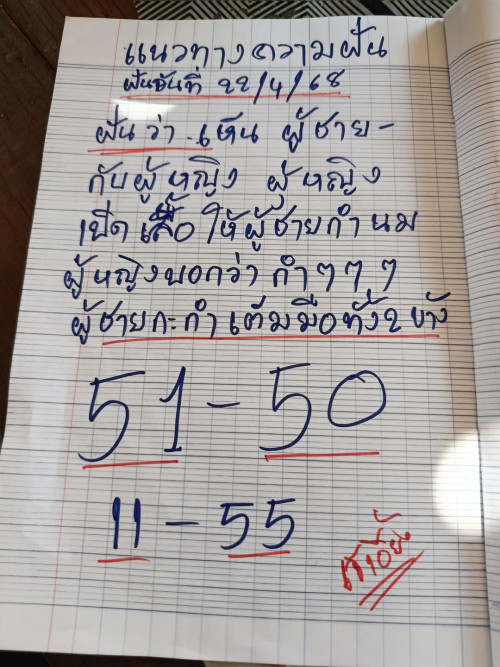 แนวทางความฝัน
ฝันวันที่ 22/4/68
ฝันว่า เห็น ผู้ชาย-
กับผู้หญิง ผู้หญิง
เปิดเสื้อให้ผู้ชายกำนม
ผู้หญิงบอกว่า กำๆๆๆ
ผู้ชายกะกำเต็มมือทั้ง2ข้าง
51-50
11-55